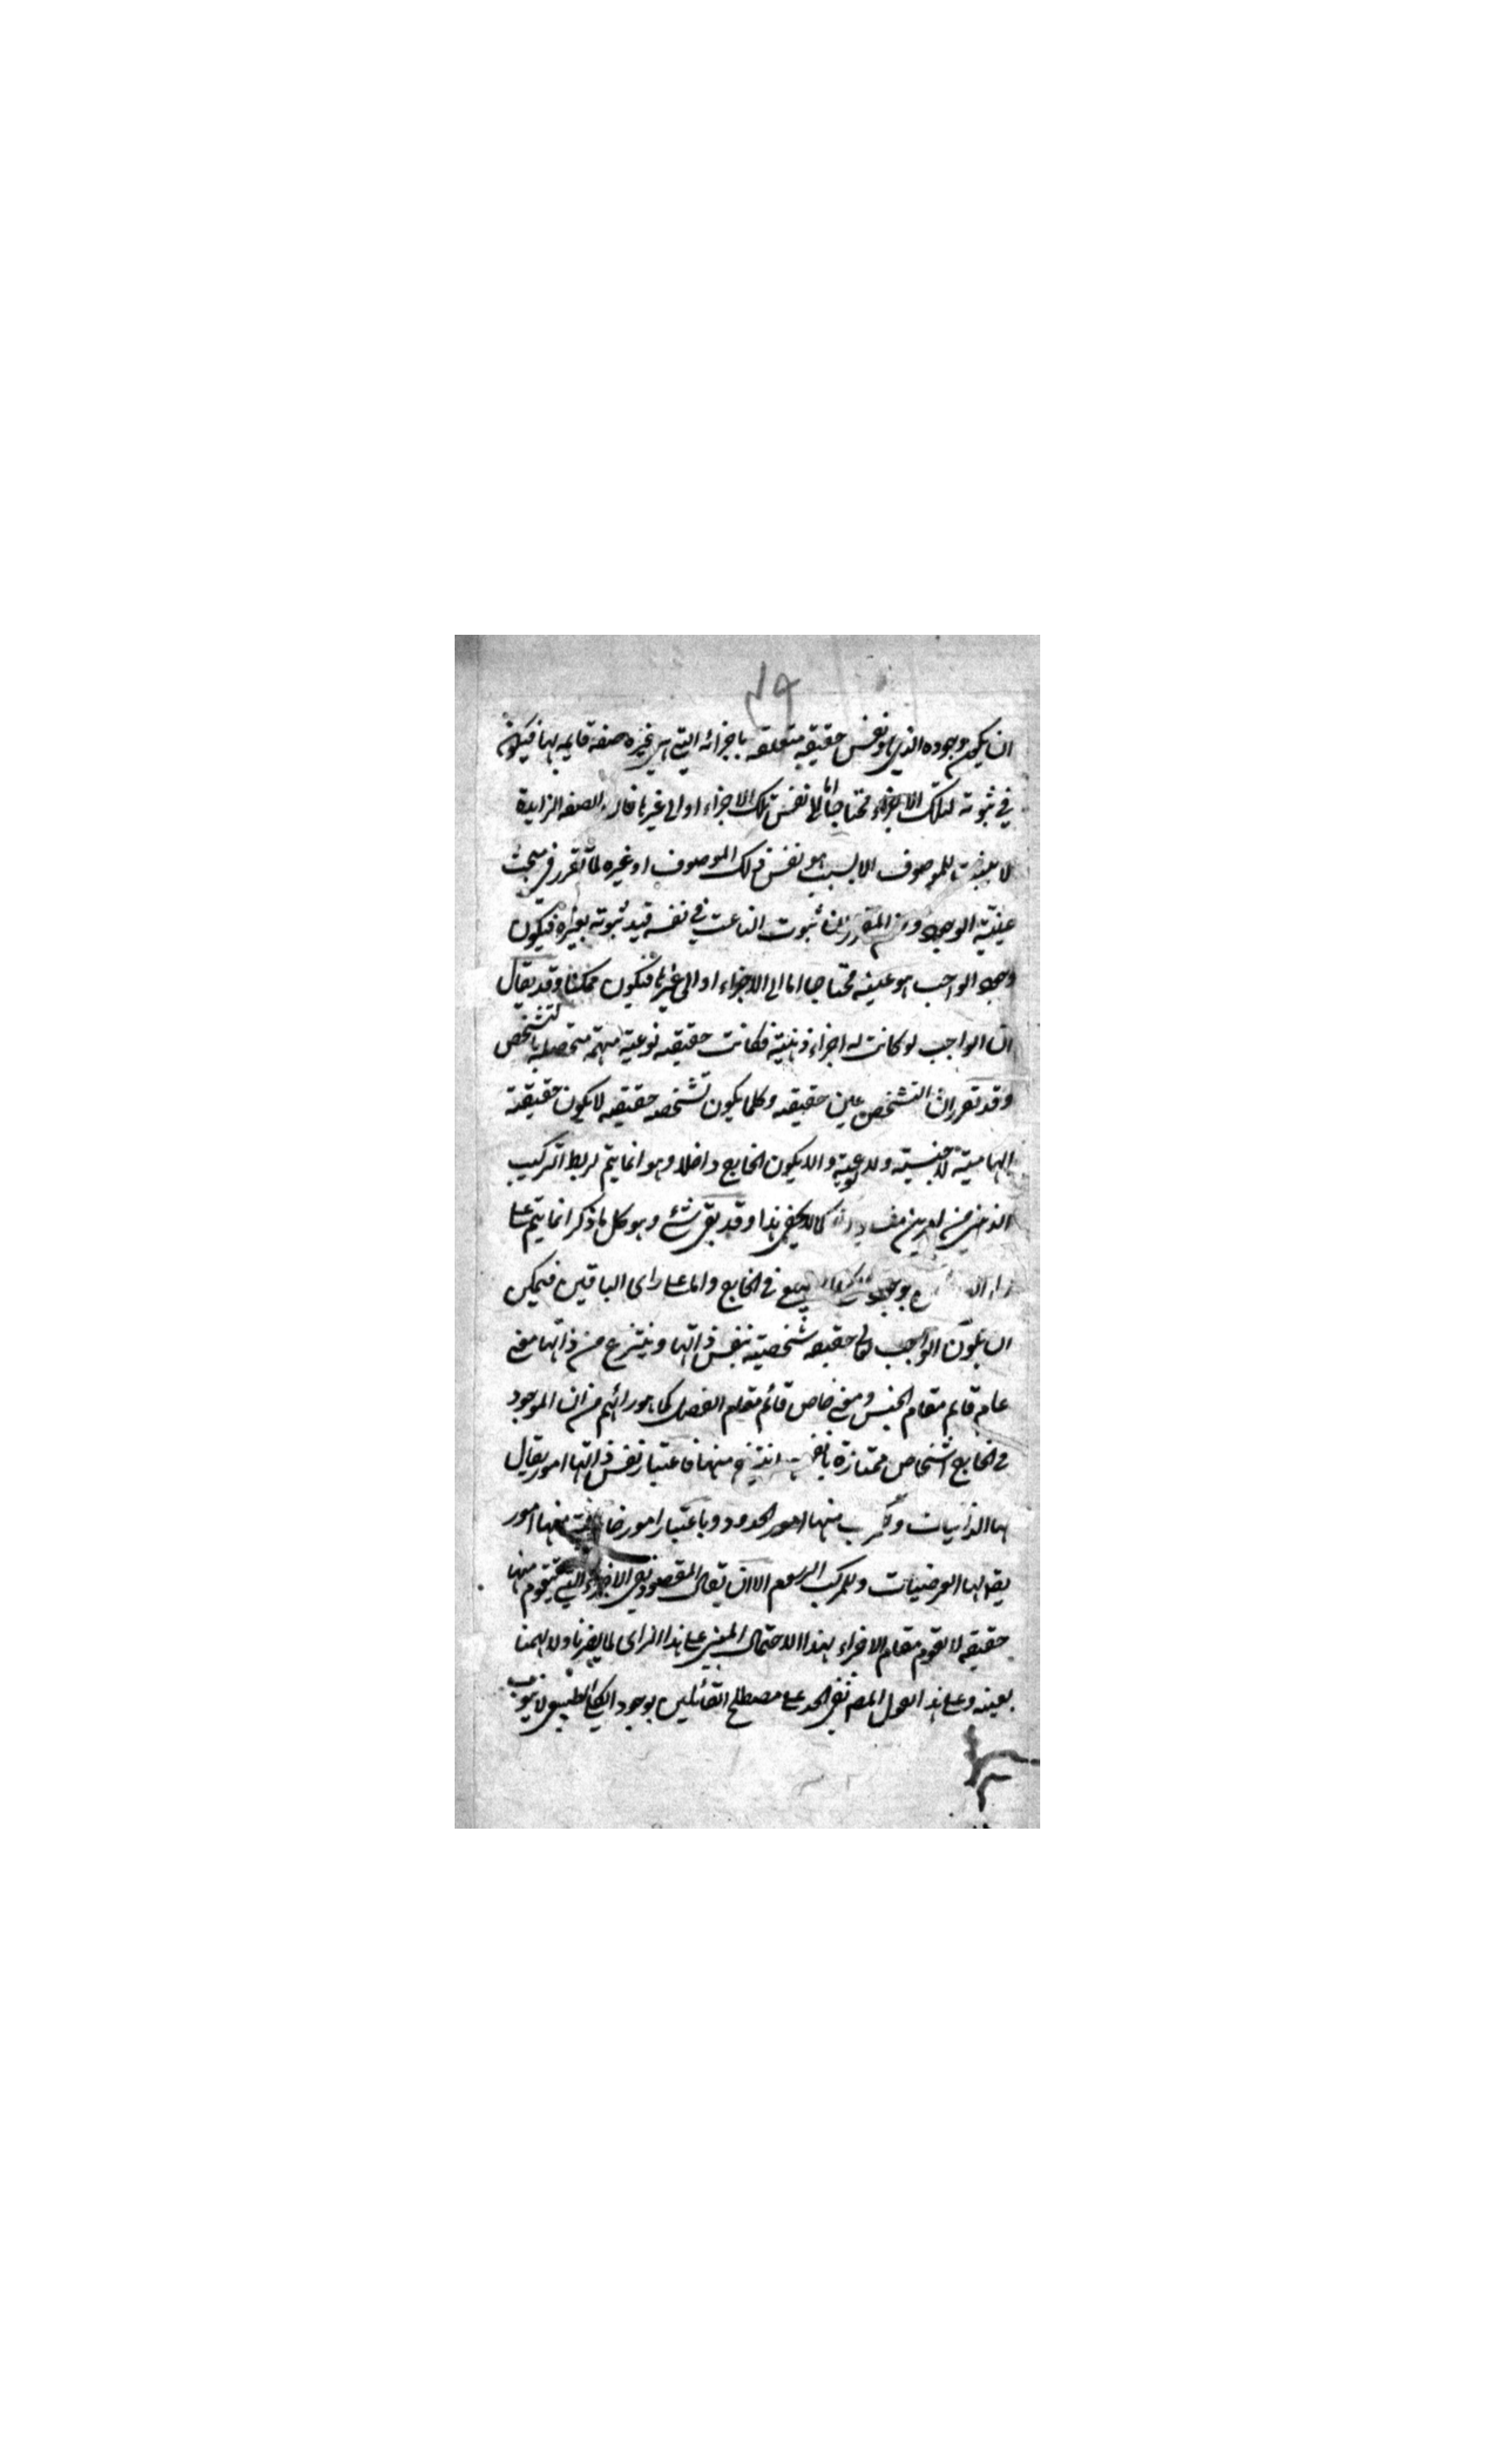 ان يكون وجوده الذي هو نفس حقيقة متعلقه باجزائه التي هي غيره صفه قايمه بها فيكون
في ثبوته لتلك الاجزاء محتاجا اما الى نفس تلك الاجزاء او الى غيرها فان الصفه الزايدة
لا يثبت للموصوف الا بسبب هو نفس ذلك الموصوف او غيره لما تقرر في مبحث
عينية الوجود و المقرر ان ثبوت الناعت في نفسه قيد ثبوته بغيره فيكون
وجود الواجب هو عينه محتاجا اما الى الاجزاء او الى غيرها فيكون ممكنا وقد يقال
ان الواجب لو كانت له اجزاء ذهنية فكانت حقيقه نوعية مبهمة متحصله بالتشخص
وقد تقرر ان التشخص عين حقيقه وكلما يكون تشخصه حقيقه لا يكون حقيقة
الهامية لا جنسية ولا نوعية والا يكون الخارج داخلا وهو انما يتم لربط التركيب
الذهني من امرين كما لا يخفى هذا وقد بقي شئ وهو كل ما ذكر انما يتم على
بوجود في الخارج واما على راى الباقين فيمكن
ان يكون الواجب تعالى حقيقه شخصية بنفس ذاتها وينتزع من ذاتها معنى
عام قائم مقام الجنس ومعنى خاص قائم مقام الفصل كما هو رائهم من ان الموجود
في الخارج اشخاص ممتازة ينتزع منها فاعتبار نفس ذاتها امور يقال
لها الذاتيات ويركب منها امور الحدود وباعتبار امور منها امور
يقال لها العرضيات ويركب الرسوم الا ان يقال المقصود نفي الاجزاء التي يتقوم منها
حقيقه لا يقوم مقام الاجزاء بهذا الاحتمال المبني على هذا الراى لا يضرنا ولا يهمنا
بعينه وعلى هذا القول المص نفي الحد على مصطلح القائلين بوجود الكلي الطبيعي لا